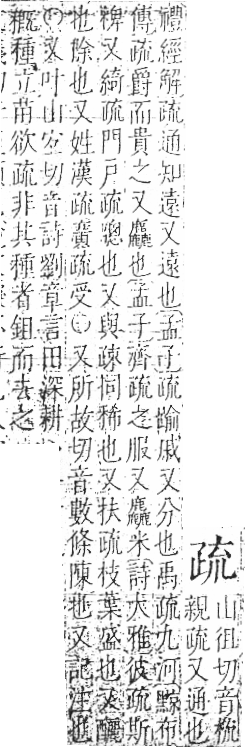 疏
山徂切音梳
親疏又通也
禮經解疏通知遠又遠也孟子疏踰戚又分也禹疏九河黥布
傳疏爵而貴之又麤也孟子齊疏之服又麤米詩大雅彼疏斯
粺又綺疏門戶疏窻也又與疎同稀也又扶疏枝葉盛也又釃
也除也又姓漢疏廣疏受○又所故切音數條陳也又記注也
○又叶山宜切音詩劉章言田深耕
穊種立苗欲疏非其種者鉏而去之